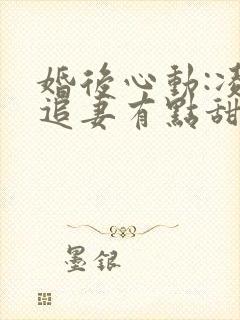 婚後心動:凌
追妻有點甜
墨銀